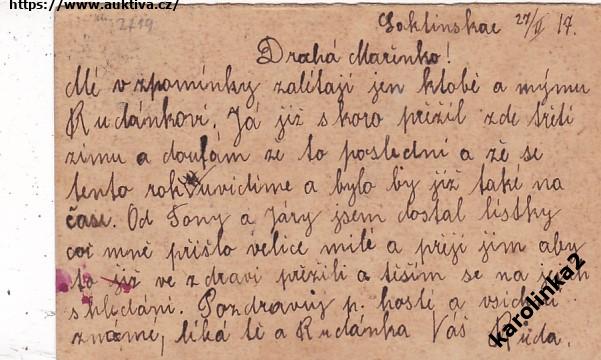 https://www.auktiva.cz/
2719
Soklinskac 27/II 17.
Drahá Mařenko!
Mé vzpomínky zalítají jen ktobě a mýmu
Rudánkovi. Já již skoro přežil zde třetí
zimu a doufám že to poslední a zě se
tento rok uvidíme a bylo by již také na
čase. Od Tony a Járy jsem dostal lístky
což mně přišlo velice milé a přeji jim aby
to již ve zdraví přežili a těším se na jejich
shledání. Pozdravuj p. hostí a všidkni
známé, líká tě a Rudánka Váš Rúda.
karolinka2